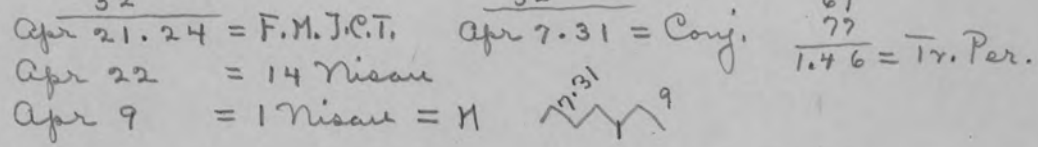 Apr 21.24 = F.M. J.C.T. Apr 7.31 = Conj. 77
1.46 = Tr. Per.
Apr 22 = 14 Nisan
Apr 9 = 1 Nisan = H 7.31 9